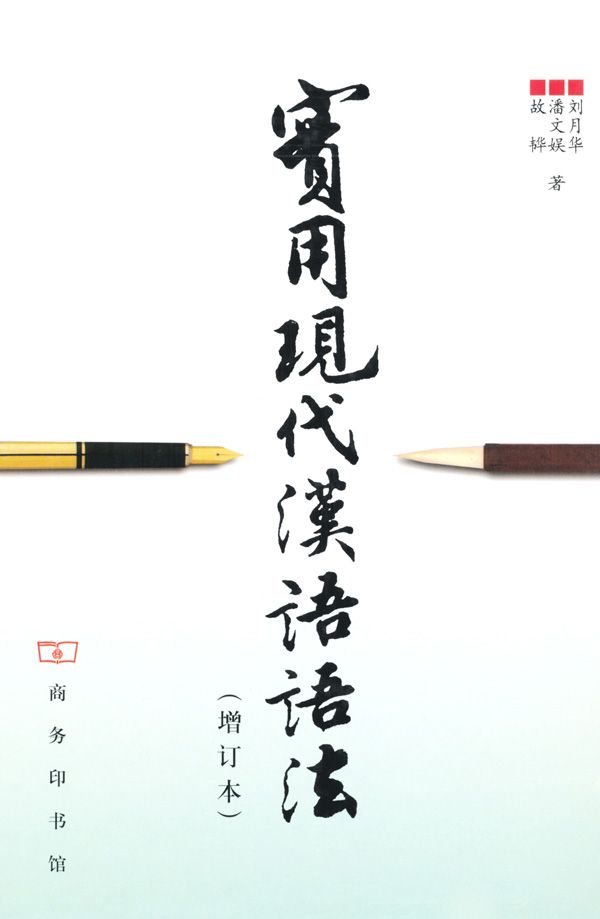 刘月华
潘文娱
故 韡 著
實用現代漢語語法
(增订本)
商务印书馆